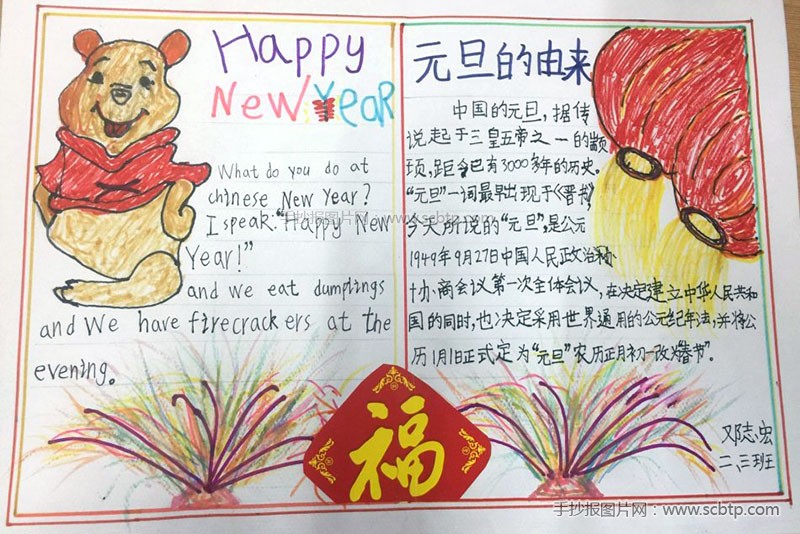 Happy
New Year
What do you do at
chinese New Year?
I speak:"Happy New
Year!"
and we eat dumplings
and We have firecrackers at the
evening.
元旦的由来
中国的元旦，据传
说起于三皇五帝之一的颛
顼，距今已有3000多年的历史。
“元旦”一词最早出现于《晋书》
今天所说的“元旦”，是公元
1949年9月27日中国人民政治
协商会议第一次全体会议，在决定建立中华人民共和
国的同时，也决定采用世界通用的公元纪年法，并将公
历1月1日正式定为“元旦”农历正月初一改为“春节”。
福
邓志宏
二、三班
手抄报图片网：www.scbtp.com
手抄报图片网：www.scbtp.com